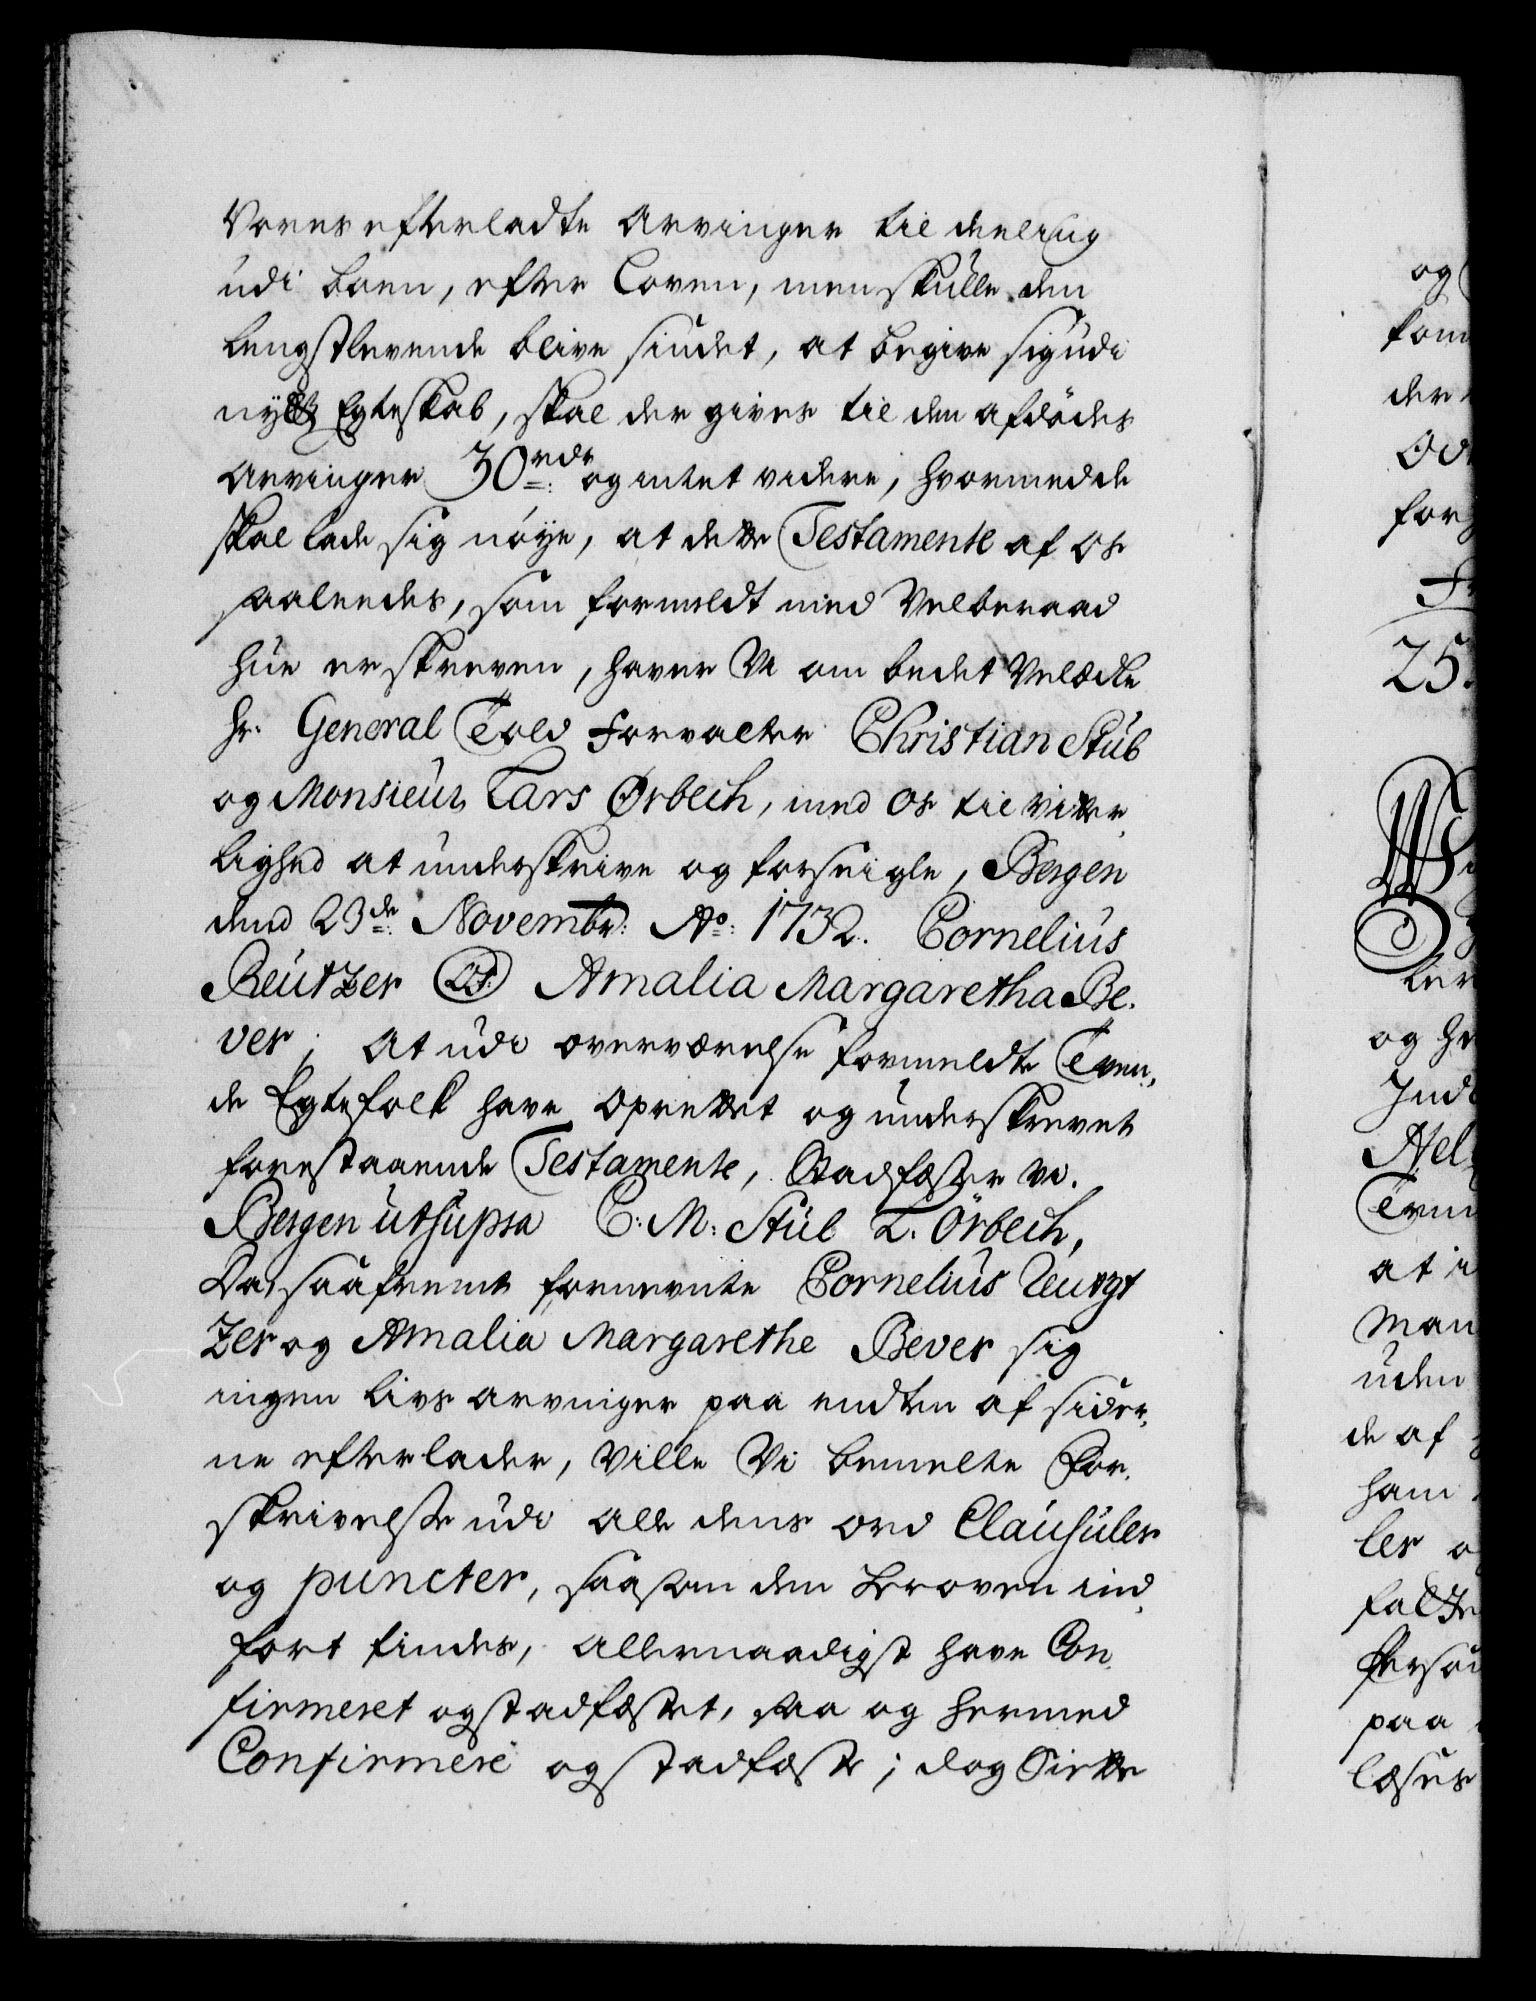 Vores efterladte Arvinger til deeling
udi boen, efter Loven, men skulle den
Lengstlevende blive sindet, at begive sig udi
nyt Egteskab, skal der gives til den afdødes
Arvinger 30 rdr og intet videre, hvormed de
skal lade sig nøye, at dette Testamente af os
saaledes, som formeldt med Velberaad
hue er skreven, haver Vi om bedet Velædle
Hr. General Told Forvalter Christian Stub
og Monsieur Lars Ørbech, med os til vitter,
lighed at underskrive og forseigle, Bergen
dend 23de Novembr: Ao: 1732. Cornelius
Reutzer LS. Amalia Margaretha Be.
ver; At udi overværelse formeldte Tven,
de Egtefolk have oprettet og underskrevet
forestaaende Testamente, Stadfæster vi.
Bergen ut supra C: M: Stub L. Örbech,
Da, saafremt fornevnte Cornelius Reutzt
zer og Amalia Margarethe Bever sig
ingen livs arvinger paa endten af sider,
ne efterlader, Ville Vi bemelte For,
skrivelse udi alle dens ord Clausuler
og puncter, saasom den heroven ind,
fort findes, allernaadigst have Con,
firmeret og stadfæstet, saa og hermed
Confirmere og stadfæste; dog Sitte
og
kom
der
for
25.
ler
og he
Jnd
Nel
Tven
at i
Man
uden
de af
ham
ler o
falde
Persoh
paa
læses